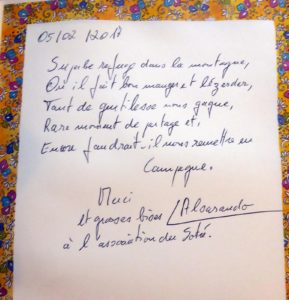 05/02/2017
Superbe refuge dans la montagne,
Où il fait bon manger et lézarder,
Tant de gentillesse nous gagne,
Rare moment de partage et,
Encore faudrait-il nous remettre en
Campagne.
Merci
et grosses bises
à l'association du